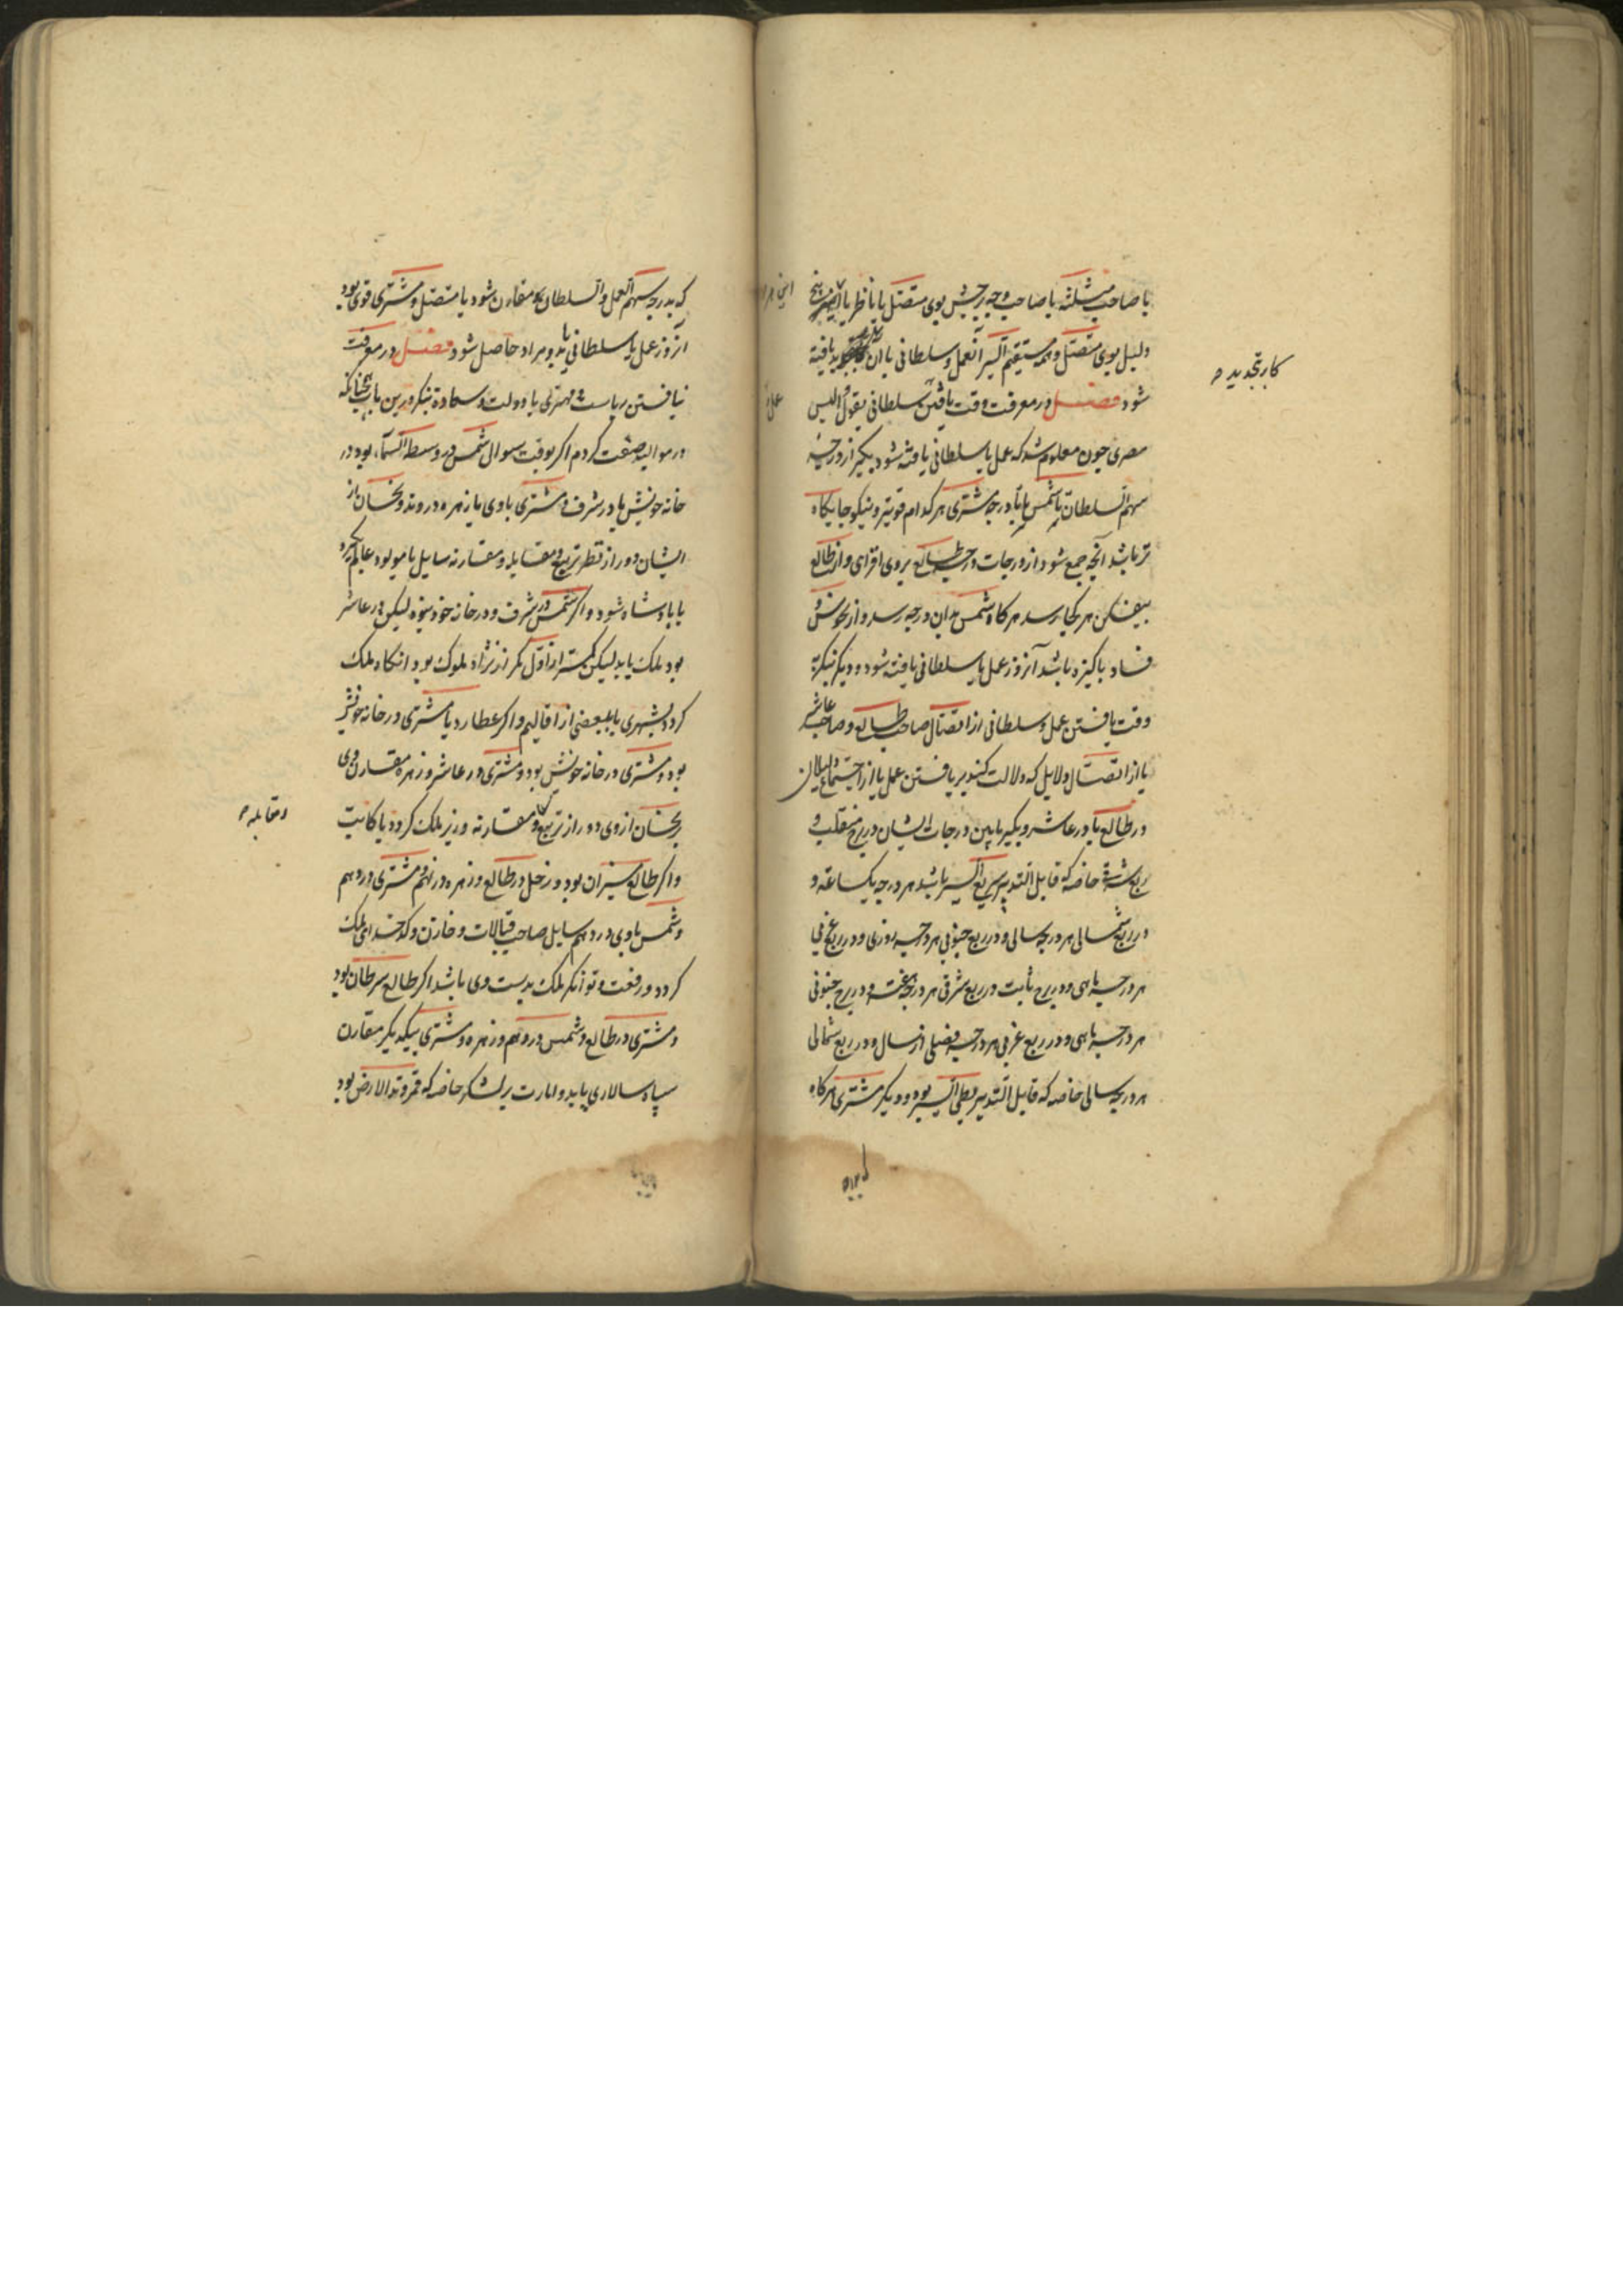 یا صاحب مثلثه یا صاحب وجه برجیش بوی متصل یا ناظر یا
دلیل بوی متصل و همه مستقیم السیر آنعمل و سلطانی یا آن یافته
شود فصل در معرفت وقت یافتن سلطانی بقول والیس
مصری چون معلوم شد که عمل یا سلطانی یافته شود بکیر از درجه
سهم السلطان تا شمس یا تا درجه مشتری هر کدام قویتر و نیکو جایکاه
تر باشد آنچه جمع شود از درجات درجه طالع بروی افزای و از طالع
بیفکن هر کجا رسد هر کاه شمس بدان درجه رسد و از نحوس و
فساد پاکیزه باشد آنروز عمل یا سلطانی یافته شود و دیکر نیکر به
وقت یافتن عمل و سلطانی از اتصال صاحب طالع و صاحب عاشر
یا از اتصال دلایل که دلالت کنند بر یافتن عمل یا از اجتماع دلیلان
در طالع یا در عاشر و بکیر مابین درجات ایشان در برج منقلب و
ربع شرقی خاصه که قابل التدبیر سریع السیر باشد هر درجه یکساعة و
در ربع شمالی هر درجه سالی و در ربع جنوبی هر درجه روزی و در ربع غربی
هر درجه ماهی و در برج ثابت در ربع شرقی هر درجه هفته و در ربع جنوبی
هر درجه ماهی و در ربع غربی هر درجه فصلی از سال و در ربع شمالی
هر درجه سالی خاصه که قابل التدبیر بطی السیر بود و دیکر مشتری هر کاه
کار تجدید
که بدرجه سهم العمل والسلطان مقارن شود یا متصل و مشتری قوی بود
آنروز عمل یا سلطانی یابد و مراد حاصل شود فصل در معرفت
یافتن ریاست و مهتری یا دولت و سعادة نیکر درین باب همچنانکه
در موالید صفت کردم اکر بوقت سوال شمس در وسط السماء بود در
خانه خویش یا در شرف و مشتری با وی یا زهره در وتد و نحسان از
ایشان دور از نظر تربیع و مقابله و مقارنه سایل یا مولود عالم کیرد
یا پادشاه شود و اکر شمس در شرف و در خانه خود نبود لیکن در عاشر
بود ملک یابد لیکن کمتر از اول مکر از نژاد ملوک بود آنکاه ملک
کردد بشهری یا ببعضی از اقالیم و اکر عطارد یا مشتری در خانه خویش
بود و مشتری در خانه خویش بود و مشتری در عاشر و زهره مقارن وی
نحسان از وی دور از تربیع و مقارنه وزیر ملک کردد یا کاتب
واکر طالع میزان بود و زحل در طالع و زهره در نهم و مشتری در دهم
و شمس با وی در دهم سایل صاحب قبالات و خازن و کدخدای ملک
کردد و رفعت و توانکر ملک بدست وی باشد اکر طالع سرطان بود
و مشتری در طالع و شمس در دهم و زهره و مشتری بیکدیکر مقارن
سپاه سالاری یابد و امارت بر لشکر خاصه که قمر وتد الارض بود
و مقابله